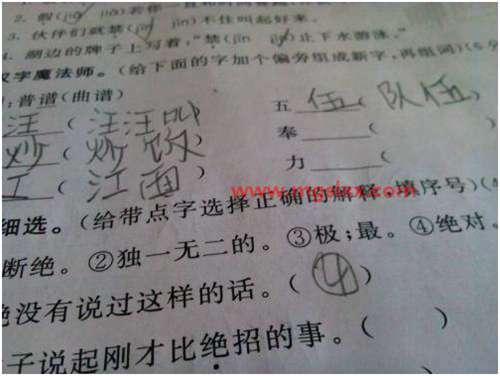 2. 假(jiǎ jià)若你一直和时间
3. 伙伴们就禁(jīn jìn)不住叫起好来。
4. 湖边的牌子上写着,“禁(jīn jìn)止下水游泳。”
汉字魔法师。(给下面的字加个偏旁组成新字,再组词)(6分
;普谱(曲谱)
五 伍 ( 队伍 )
汪 ( 汪汪叫
奉 (
炒 ( 炒饭
力 (
工 ( 江面 )
细选。(给带点字选择正确的解释,填序号)(4
断绝。②独一无二的。③极;最。④绝对。
绝没有说过这样的话。( ④ )
子说起刚才比绝招的事。( )